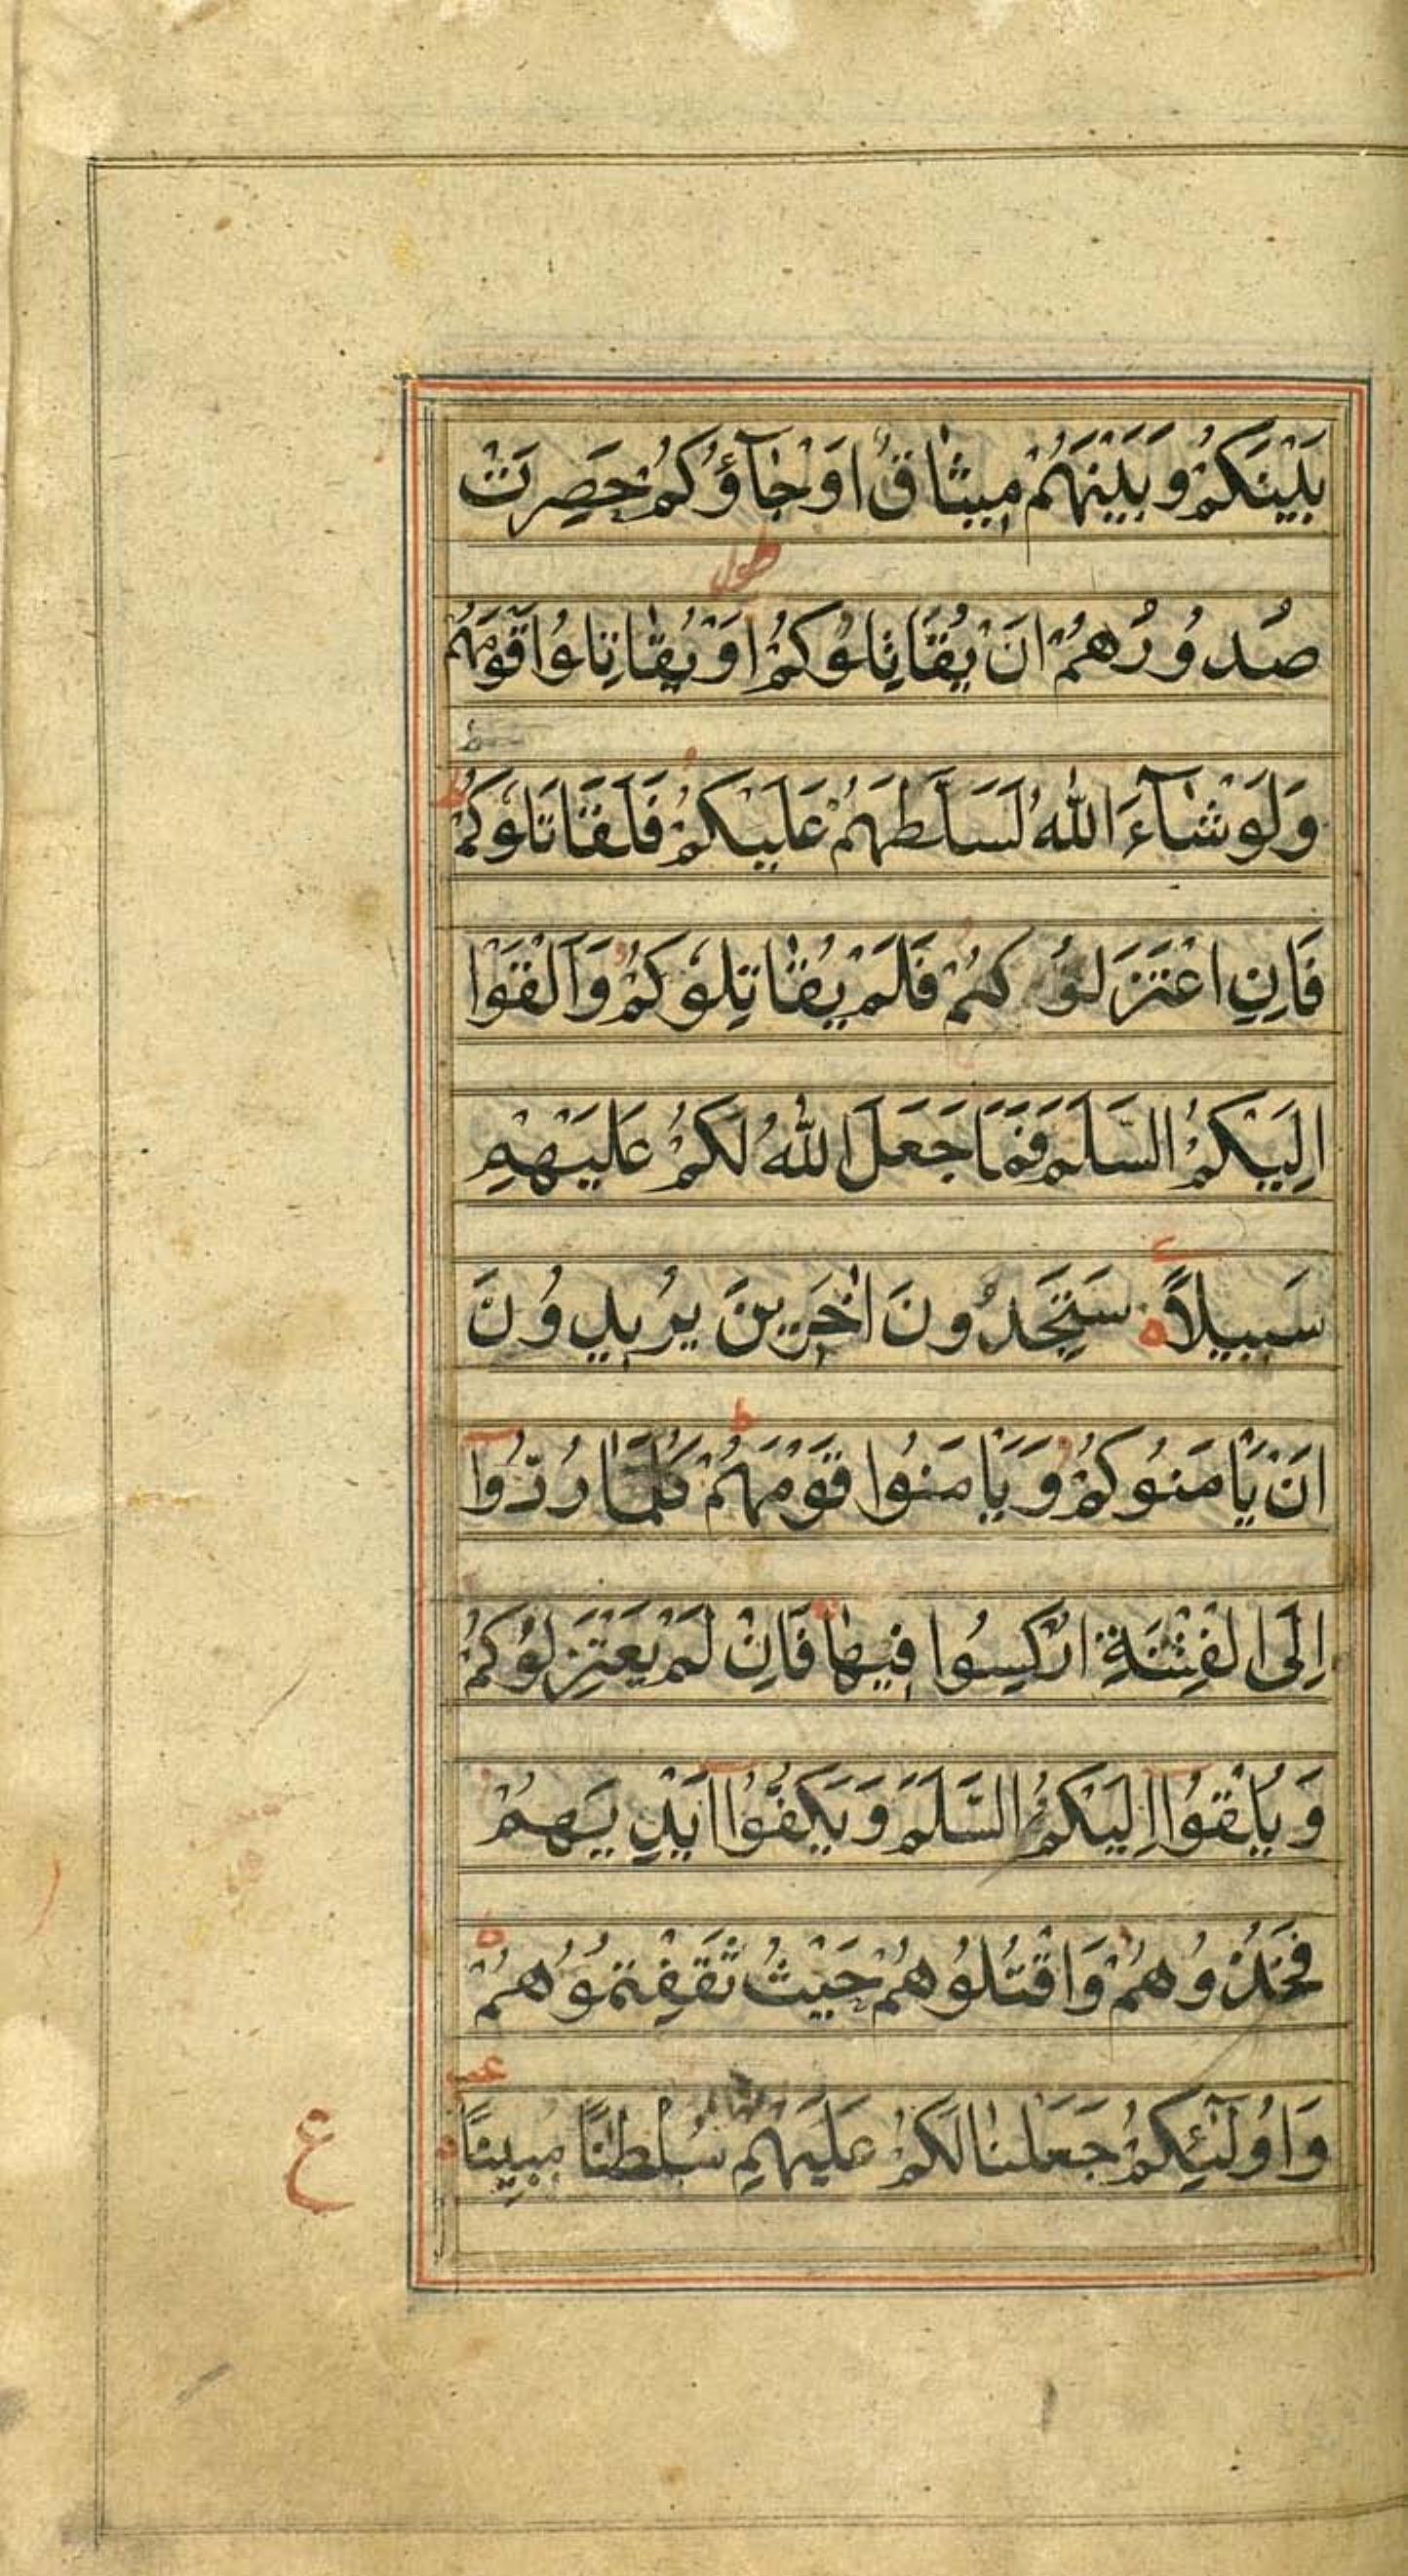 بَيْنَكُمْ وَبَيْنَهُمْ مِيثَاقٌ اَوْ جَآؤُكُمْ حَصِرَتْ
صُدُورُهُمْ اَنْ يُقَاتِلُوكُمْ اَوْ يُقَاتِلُوا قَوْمَهُمْ
وَلَوْ شَآءَ اللّٰهُ لَسَلَّطَهُمْ عَلَيْكُمْ فَلَقَاتَلُوكُمْ
فَاِنِ اعْتَزَلُوكُمْ فَلَمْ يُقَاتِلُوكُمْ وَاَلْقَوْا
اِلَيْكُمُ السَّلَمَ فَمَا جَعَلَ اللّٰهُ لَكُمْ عَلَيْهِمْ
سَبِيلًا سَتَجِدُونَ اٰخَرِينَ يُرِيدُونَ
اَنْ يَّاْمَنُوكُمْ وَيَاْمَنُوا قَوْمَهُمْ كُلَّمَا رُدُّوْٓا
اِلَى الْفِتْنَةِ اُرْكِسُوا فِيهَا فَاِنْ لَمْ يَعْتَزِلُوكُمْ
وَيُلْقُوْٓا اِلَيْكُمُ السَّلَمَ وَيَكُفُّوْٓا اَيْدِيَهُمْ
فَخُذُوهُمْ وَاقْتُلُوهُمْ حَيْثُ ثَقِفْتُمُوهُمْ
وَاُولٰٓئِكُمْ جَعَلْنَا لَكُمْ عَلَيْهِمْ سُلْطٰنًا مُبِينًا
ع